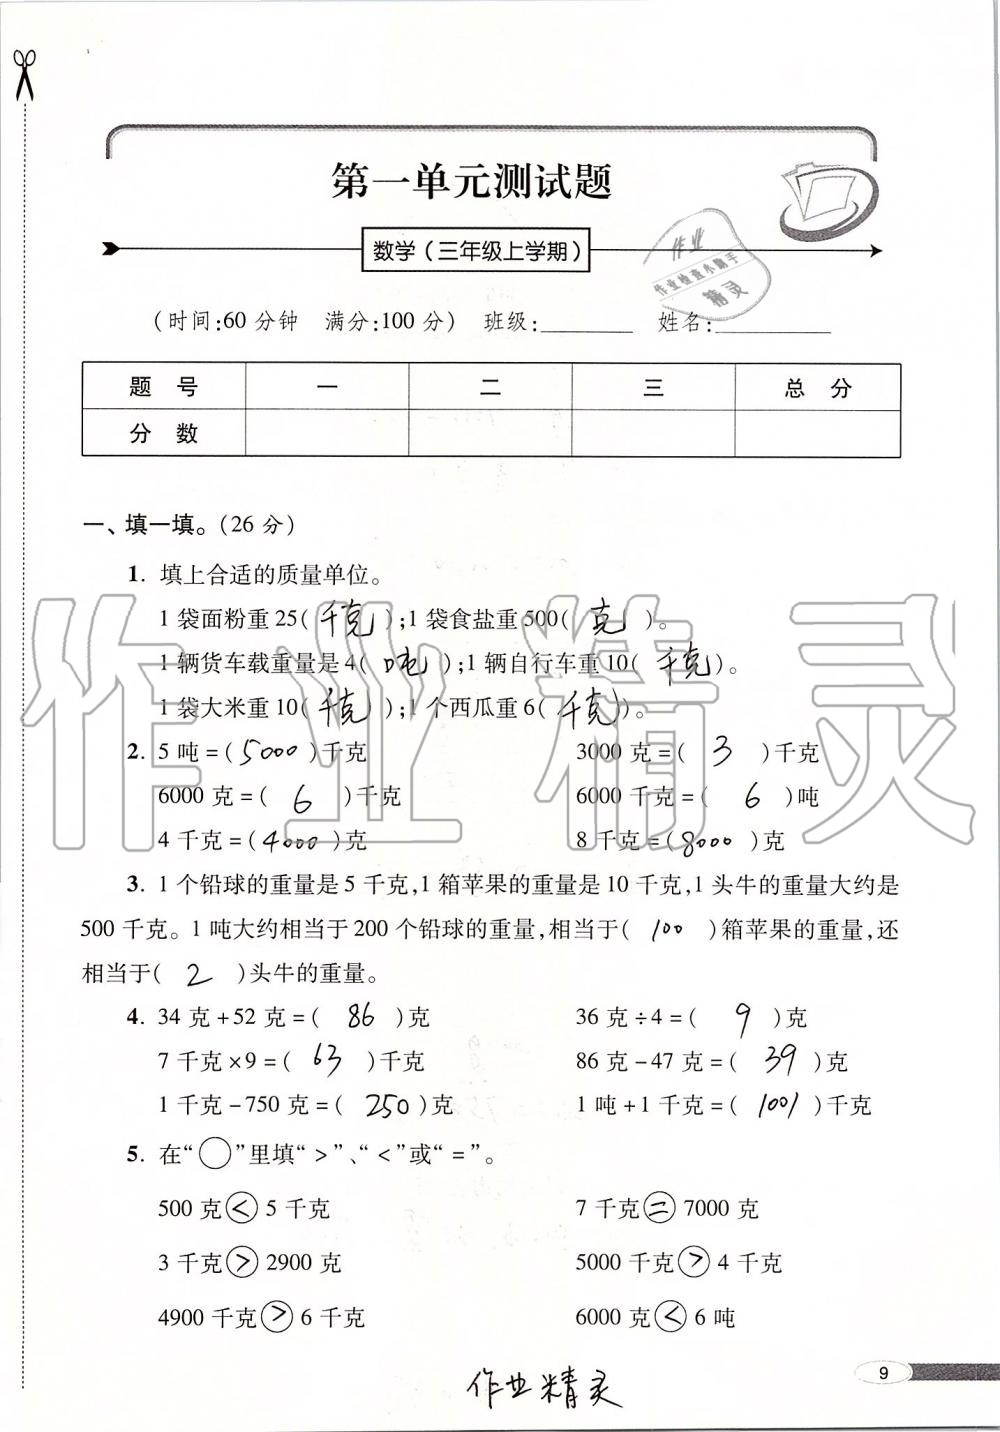 第一单元测试题
数学(三年级上学期)
作业
作业检查小助手
精灵
(时间:60分钟 满分:100分) 班级:________ 姓名:________
题 号 一 二 三 总 分
分 数
一、填一填。(26分)
1. 填上合适的质量单位。
1袋面粉重25(千克);1袋食盐重500(克)。
1辆货车载重量是4(吨);1辆自行车重10(千克)。
1袋大米重10(千克);1个西瓜重6(千克)。
2. 5吨=(5000)千克 3000克=(3)千克
6000克=(6)千克 6000千克=(6)吨
4千克=(4000)克 8千克=(8000)克
3. 1个铅球的重量是5千克,1箱苹果的重量是10千克,1头牛的重量大约是
500千克。1吨大约相当于200个铅球的重量,相当于(100)箱苹果的重量,还
相当于(2)头牛的重量。
4. 34克+52克=(86)克 36克÷4=(9)克
7千克×9=(63)千克 86克-47克=(39)克
1千克-750克=(250)克 1吨+1千克=(1001)千克
5. 在“○”里填“>”、“<”或“=”。
500克<5千克 7千克=7000克
3千克>2900克 5000千克>4千克
4900千克>6千克 6000克<6吨
作业精灵
作业精灵
9